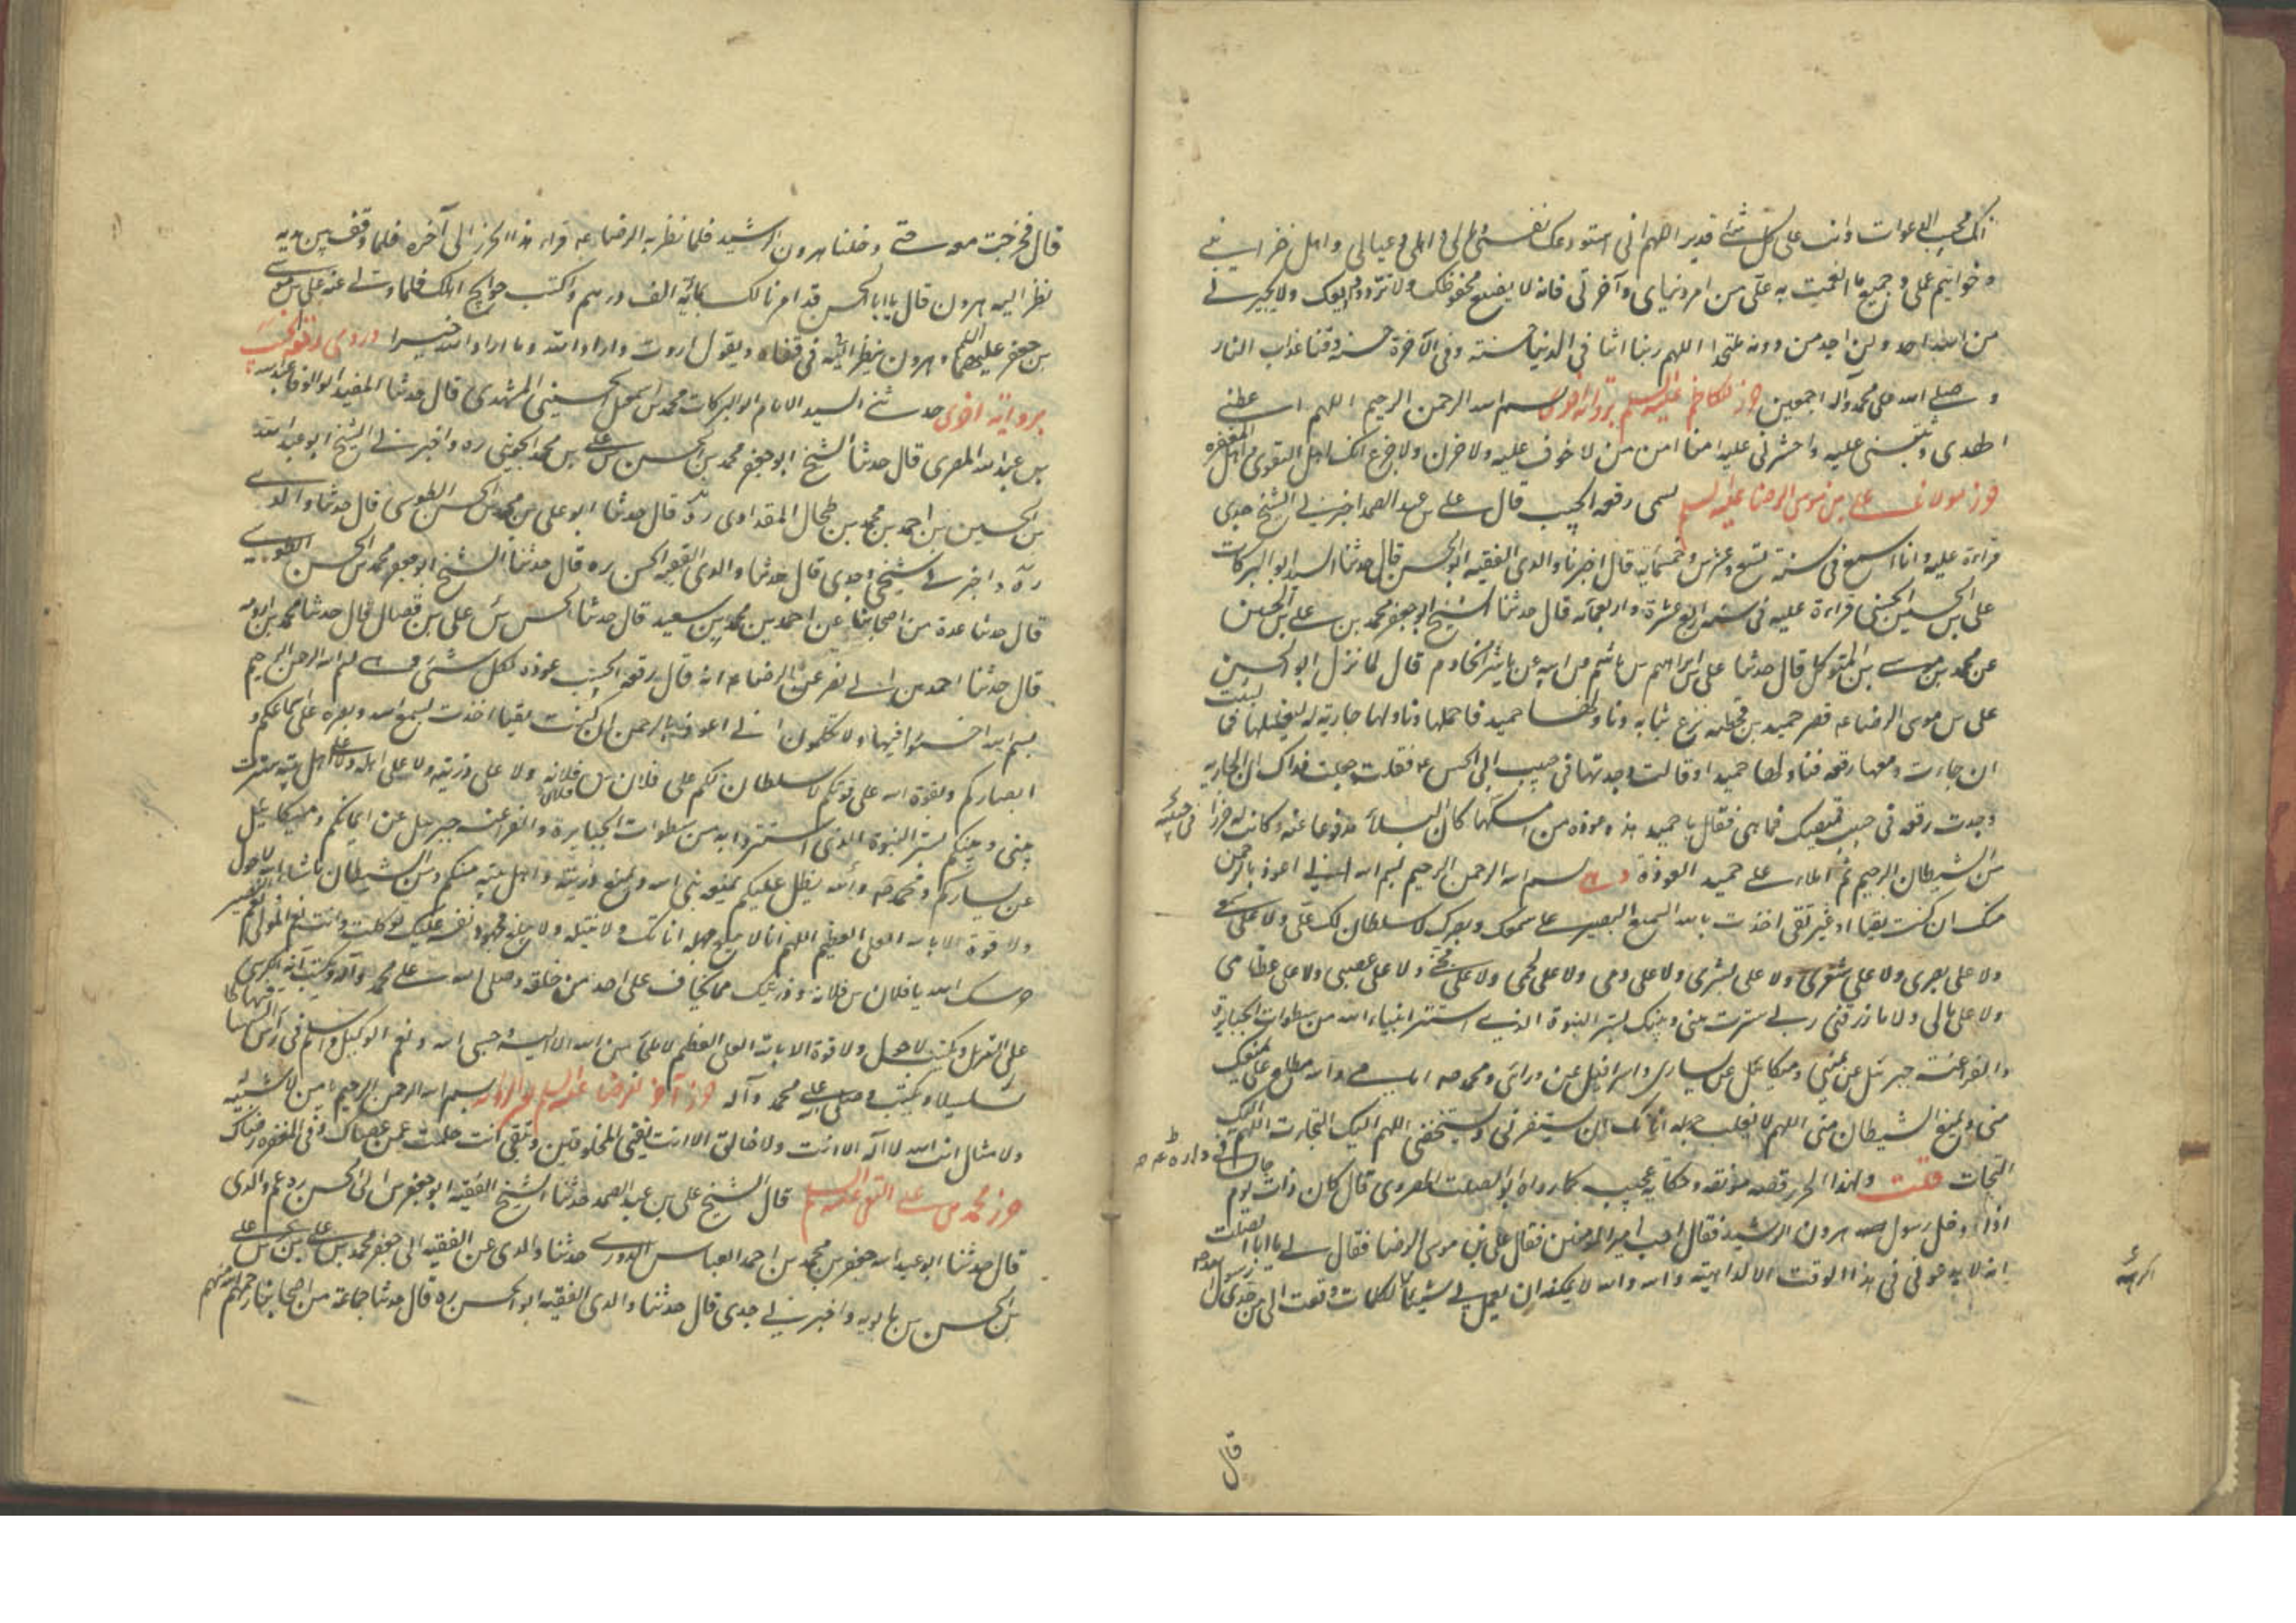 انك مجيب الدعوات وانت على كل شئ قدير اللهم انى استودعك نفسى و اهلى و عيالى واهل خزانتى
وخواتيم عملى و جميع ما انعمت به على من امر دنياى و آخرتى فانه لا يضيع محفوظك ولا ترد ودايعك ولا يجيرنى
من الله احد ولن اجد من دونه ملتحدا اللهم ربنا اتنا فى الدنيا حسنة وفى الآخرة حسنة وقنا عذاب النار
و صلى الله على محمد وآله اجمعين حرز الكاظم عليه السلم برواية اخرى بسم الله الرحمن الرحيم اللهم اعطنى
الهدى وثبتنى عليه واحشرنى عليه امنا امن من لا خوف عليه ولا حزن ولا جزع انك اهل التقوى واهل المغفرة
حرز مولانا على بن موسى الرضا عليه السلم يسمى رقعة الجيب قال على بن عبد الصمد اخبرنى الشيخ جدى
قراءة عليه وانا اسمع فى سنة تسع وعشرين وخمسمائة قال اخبرنا والدى الفقيه ابو الحسن قال حدثنا السيد ابو البركات
على بن الحسين الحسنى قراءة عليه فى سنة اربع عشرة واربعمائة قال حدثنا الشيخ ابو جعفر محمد بن على بن الحسين
عن محمد بن موسى بن المتوكل قال حدثنا على بن ابراهيم بن هاشم عن ابيه عن ياسر الخادم قال لما نزل ابو الحسن
على بن موسى الرضا ع قصر حميد بن قحطبة نزع ثيابه وناولها حميد فاحتملها وناولها جارية له لتغسلها فما لبثت
ان جاءت ومعها رقعة فناولتها حميدا وقالت وجدتها فى جيب ابى الحسن ع فقلت جعلت فداك ان الجارية
وجدت رقعة فى جيب قميصك فما هى فقال يا حميد هذه عوذة من امسكها كان البلاء مدفوعا عنه وكانت له حرزا
فى جيبه
من الشيطان الرجيم ثم املاء على حميد العوذة وهى بسم الله الرحمن الرحيم بسم الله انى اعوذ بالرحمن
منك ان كنت تقيا او غير تقى اخذت بالله السميع البصير على سمعك وبصرك لا سلطان لك على ولا على سمعى
ولا على بصرى ولا على شعرى ولا على بشرى ولا على دمى ولا على لحمى ولا على مخى ولا على عصبى ولا على عظامى
ولا على مالى ولا ما رزقنى ربى سترت بينى وبينك بستر النبوة الذى استتر انبياء الله من سطوات الجبابرة
والفراعنة جبرئيل عن يمينى وميكائيل عن يسارى واسرافيل عن ورائى ومحمد ص امامى والله مطلع على يمنعك
منى ويمنع الشيطان منى اللهم لا يغلب جهله اناتك ان يستفزنى ويستخفنى اللهم اليك التجات اللهم اليك
التجات قلت ولهذا الحرز قصة مونقة وحكاية عجيبة كما رواه ابو الصلت الهروى قال كان ذات يوم
جالسا فى داره ع ص
اذا دخل رسول هرون الرشيد فقال اجب امير المؤمنين فقال على بن موسى الرضا فقال لى يا ابا الصلت
انه لا يدعونى فى هذا الوقت الا لداهية والله والله لا يمكنه ان يعمل بى شيئا لكلمات وقعت الى من جدى رسول الله ص
اكرهه
قال
قال فخرجت معه حتى دخلنا هرون الرشيد فلما نظر به الرضا ع قراء هذا الحرز الى آخره فلما وقف بين يديه
نظر اليه هرون قال يا ابا الحسن قد امرنا لك بمائة الف درهم واكتب حوايج اهلك فلما ولى عنه على بن موسى
بن جعفر عليهم السلم وهرون ينظر اليه فى قفاه ويقول اردت واراد الله وما اراد الله خيرا و روى رقعة الجيب
برواية اخرى حدثنى السيد الامام ابو البركات محمد بن اسمعيل الحسينى المشهدى قال حدثنا المفيد ابو الوفا عبد الجبار
بن عبد الله المقرى قال حدثنا الشيخ ابو جعفر محمد بن الحسن بن على ره واخبرنى الشيخ ابو عبد الله
بن الحسين بن احمد بن محمد بن طحال المقدادى ره قال حدثنا ابو على بن محمد بن الحسن الطوسى قال حدثنا والدى
ره واخبرنى شيخى وجدى قال حدثنا والدى الفقيه ابو الحسن ره قال حدثنا الشيخ ابو جعفر محمد بن الحسن الطوسى
قال حدثنا عدة من اصحابنا عن احمد بن محمد بن سعيد قال حدثنا الحسن بن على بن فضال قال حدثنا محمد بن اورمه
قال حدثنا احمد بن ابى نصر عن الرضا ع انه قال رقعة الجيب عوذة لكل شئ بسم الله الرحمن الرحيم
بسم الله اخسئوا فيها ولا تكلمون انى اعوذ بالرحمن ان كنت تقيا اخذت بسمع الله وبصره على اسماعكم و
ابصاركم وبقوة الله على قوتكم لا سلطان لكم على فلان بن فلانة ولا على ذريته ولا على اهله ولا على اهل بيته سترت
بينى وبينكم بستر النبوة الذى استتروا به من سطوات الجبابرة والفراعنة جبرئيل عن ايمانكم وميكائيل
عن يساركم ومحمد ص والله يطل عليكم يمنعه نبى الله ويمنع ذريته واهل بيته منكم ومن الشيطان ما شاء الله لا حول
ولا قوة الا بالله العلى العظيم اللهم انه لا يبلغ جهله اناتك ولا تبتله ولا يبلغ مجهود نفسه عليك توكلت وانت نعم المولى ونعم النصير
حرسك الله يا فلان بن فلانة وذريتك مما تخاف على احد من خلقه وصلى الله على محمد وآله وتكتب آية الكرسى
على التنزيل وتكتب لا حول ولا قوة الا بالله العلى العظيم لا ملجاء من الله الا اليه حسبى الله ونعم الوكيل
سلسبيلا وتكتب وصلى الله على محمد وآله حرز آخر للرضا عليه السلم بسم الله الرحمن الرحيم يا من لا شبيه له
ولا مثال انت الله لا آله الا انت ولا خالق الا انت تفنى المخلوقين وتبقى انت حلمت عمن عصاك وفى المغفرة رضاك
حرز محمد بن على التقى عليه السلم قال الشيخ على بن عبد الصمد حدثنا الشيخ الفقيه ابو جعفر بن ابى الحسن ره عم والدى
قال حدثنا ابو عبد الله جعفر بن محمد بن احمد العباس الدورى حدثنا والدى عن الفقيه ابى جعفر محمد بن على
بن الحسين بن بابويه واخبرنى جدى قال حدثنا والدى الفقيه ابو الحسن ره قال حدثنا جماعة من اصحابنا رحمهم الله منهم